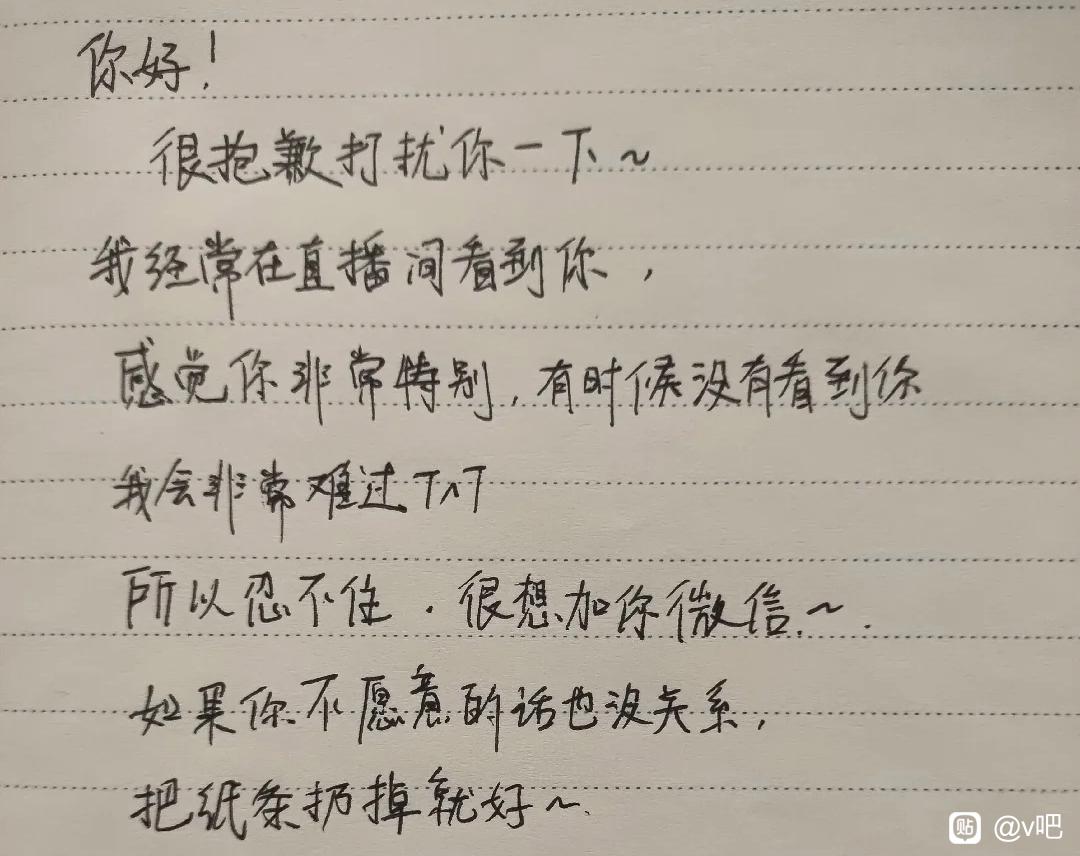 你好!
很抱歉打扰你一下~
我经常在直播间看到你,
感觉你非常特别,有时候没有看到你
我会非常难过T^T
所以忍不住.很想加你微信~.
如果你不愿意的话也没关系,
把纸条扔掉就好~
贴 @v吧